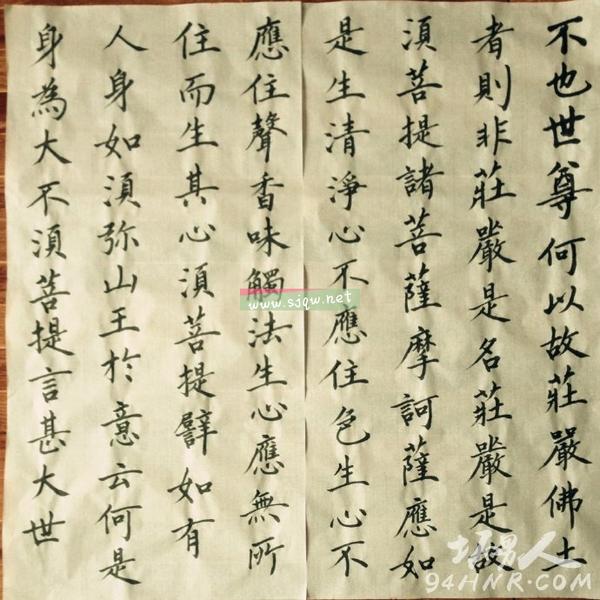 不也世尊何以故莊嚴佛土
者則非莊嚴是名莊嚴是故
須菩提諸菩薩摩訶薩應如
是生清淨心不應住色生心不
應住聲香味觸法生心應無所
住而生其心須菩提譬如有
人身如須弥山王於意云何是
身為大不須菩提言甚大世
www.sjqw.net
94HNR.COM